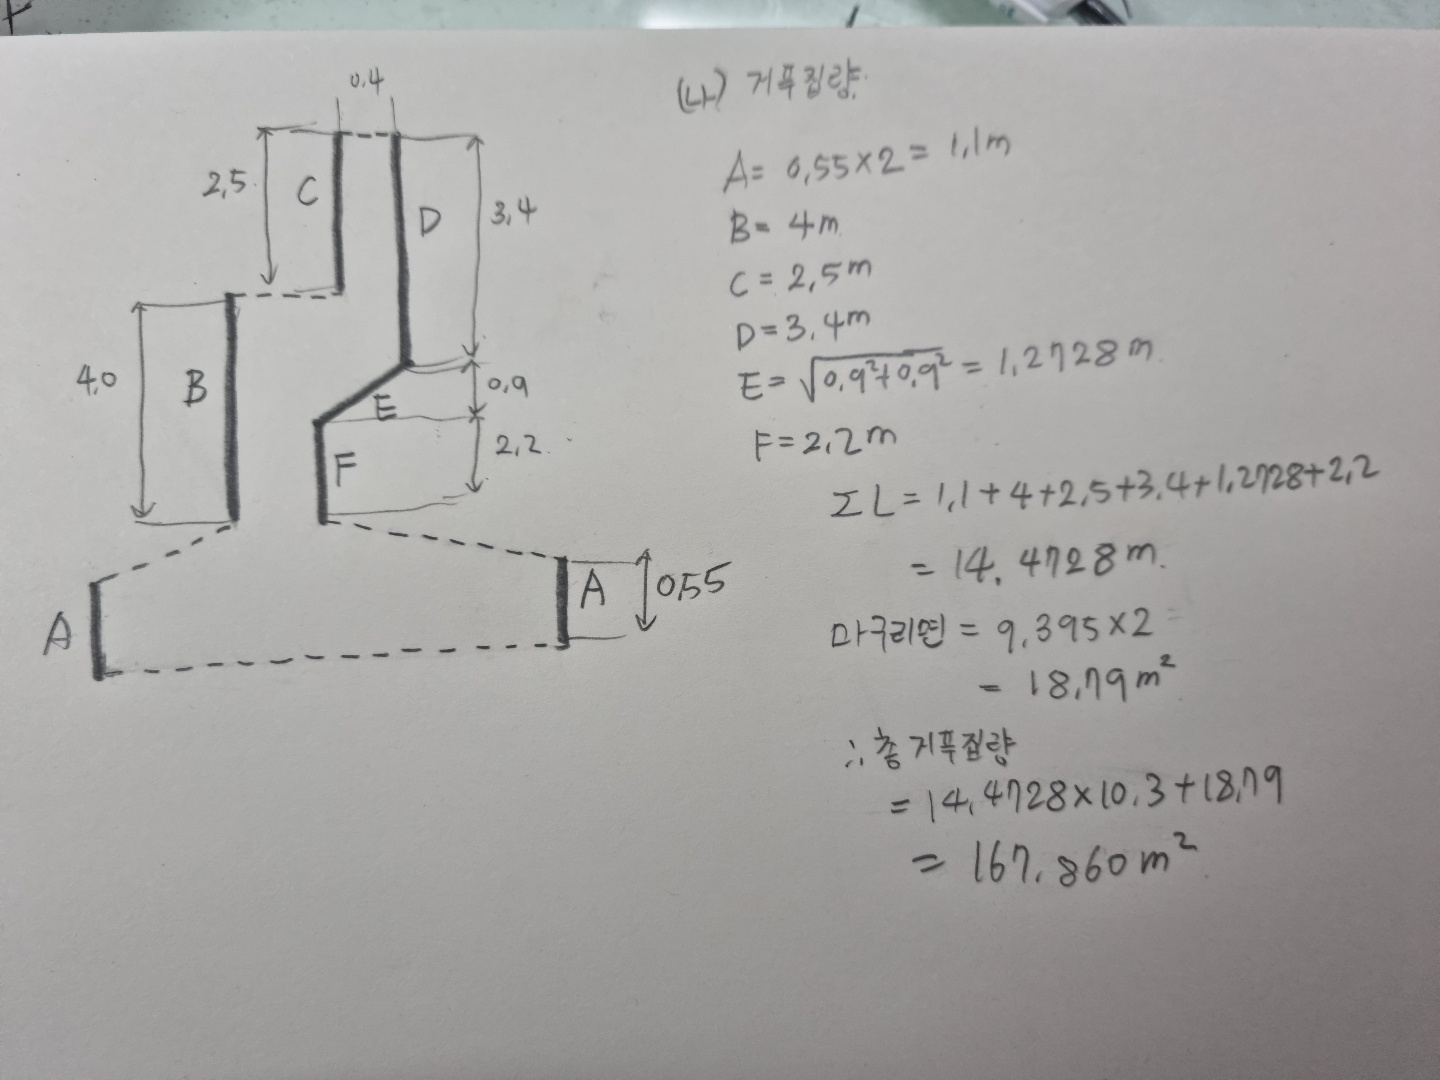 0.4
2,5
C
D
3,4
4,0
B
E
0,9
F
2,2
A
A
0,55
(나) 거푸집량.
A= 0,55×2= 1,1m
B= 4m
C= 2,5m
D=3,4m
E= √0,9²+0,9² = 1,2728m
F=2,2m
ΣL=1,1+4+2,5+3,4+1,2728+2,2
= 14.4728m.
마구리면 = 9,395×2
= 18,79m²
∴총거푸집량
=14,4728×10.3+18,79
= 167.860m²